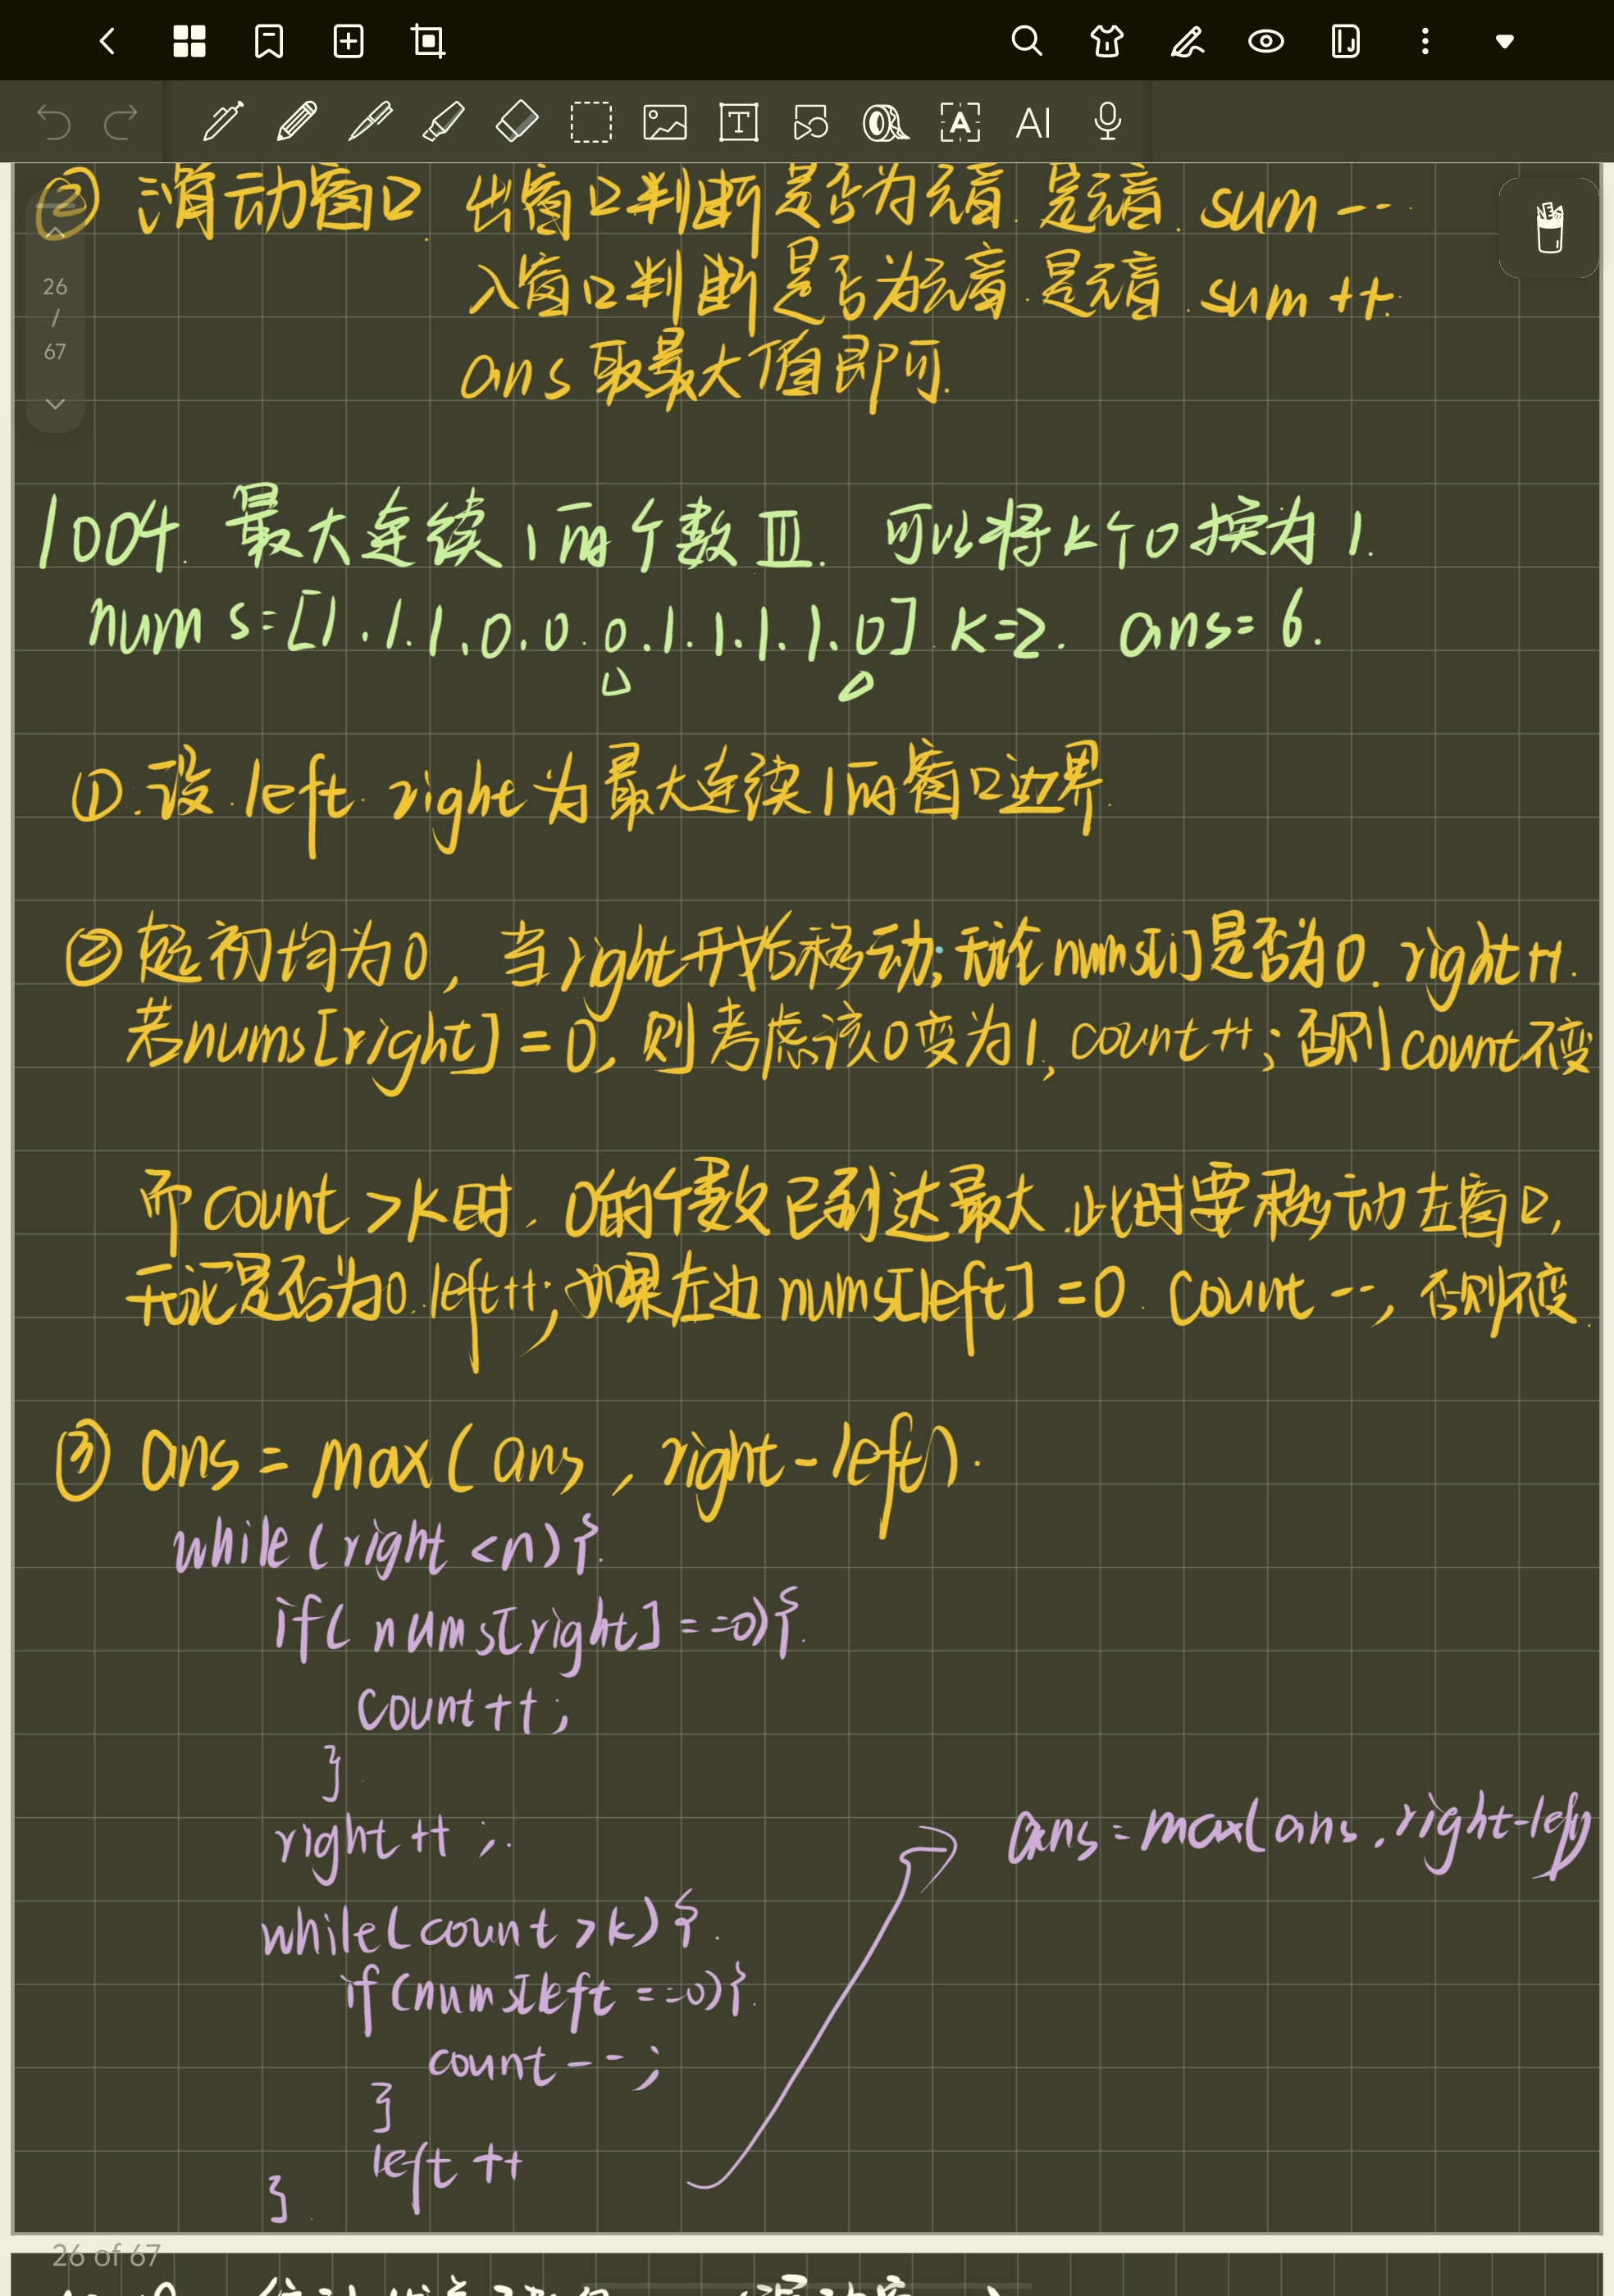 ② 滑动窗口 出窗口判断是否为元音. 是元音. sum--
入窗口判断是否为元音. 是元音. sum++.
ans取最大值即可.
26
/
67
1004. 最大连续1的个数Ⅲ. 可以将k个0换为1.
nums=[1.1.1.0.0.0.1.1.1.1.0] k=2. ans=6.
①.设.left right为最大连续1的窗口边界.
②起初均为0, 当right开始移动;无论nums[i]是否为0. right++.
若nums[right]=0, 则考虑该0变为1, count++; 否则count不变
而count>k时. 0的个数已到达最大.此时要移动左窗口,
无论是否为0.left++;如果左边nums[left]=0. count--, 否则不变.
③ ans=max(ans, right-left).
while(right<n){
if(nums[right]==0){
count++;
}
right++;
ans=max(ans.right-left)
while(count>k){
if(nums[left==0){
count--;
}
left++
}
26 of 67
T
A
AI